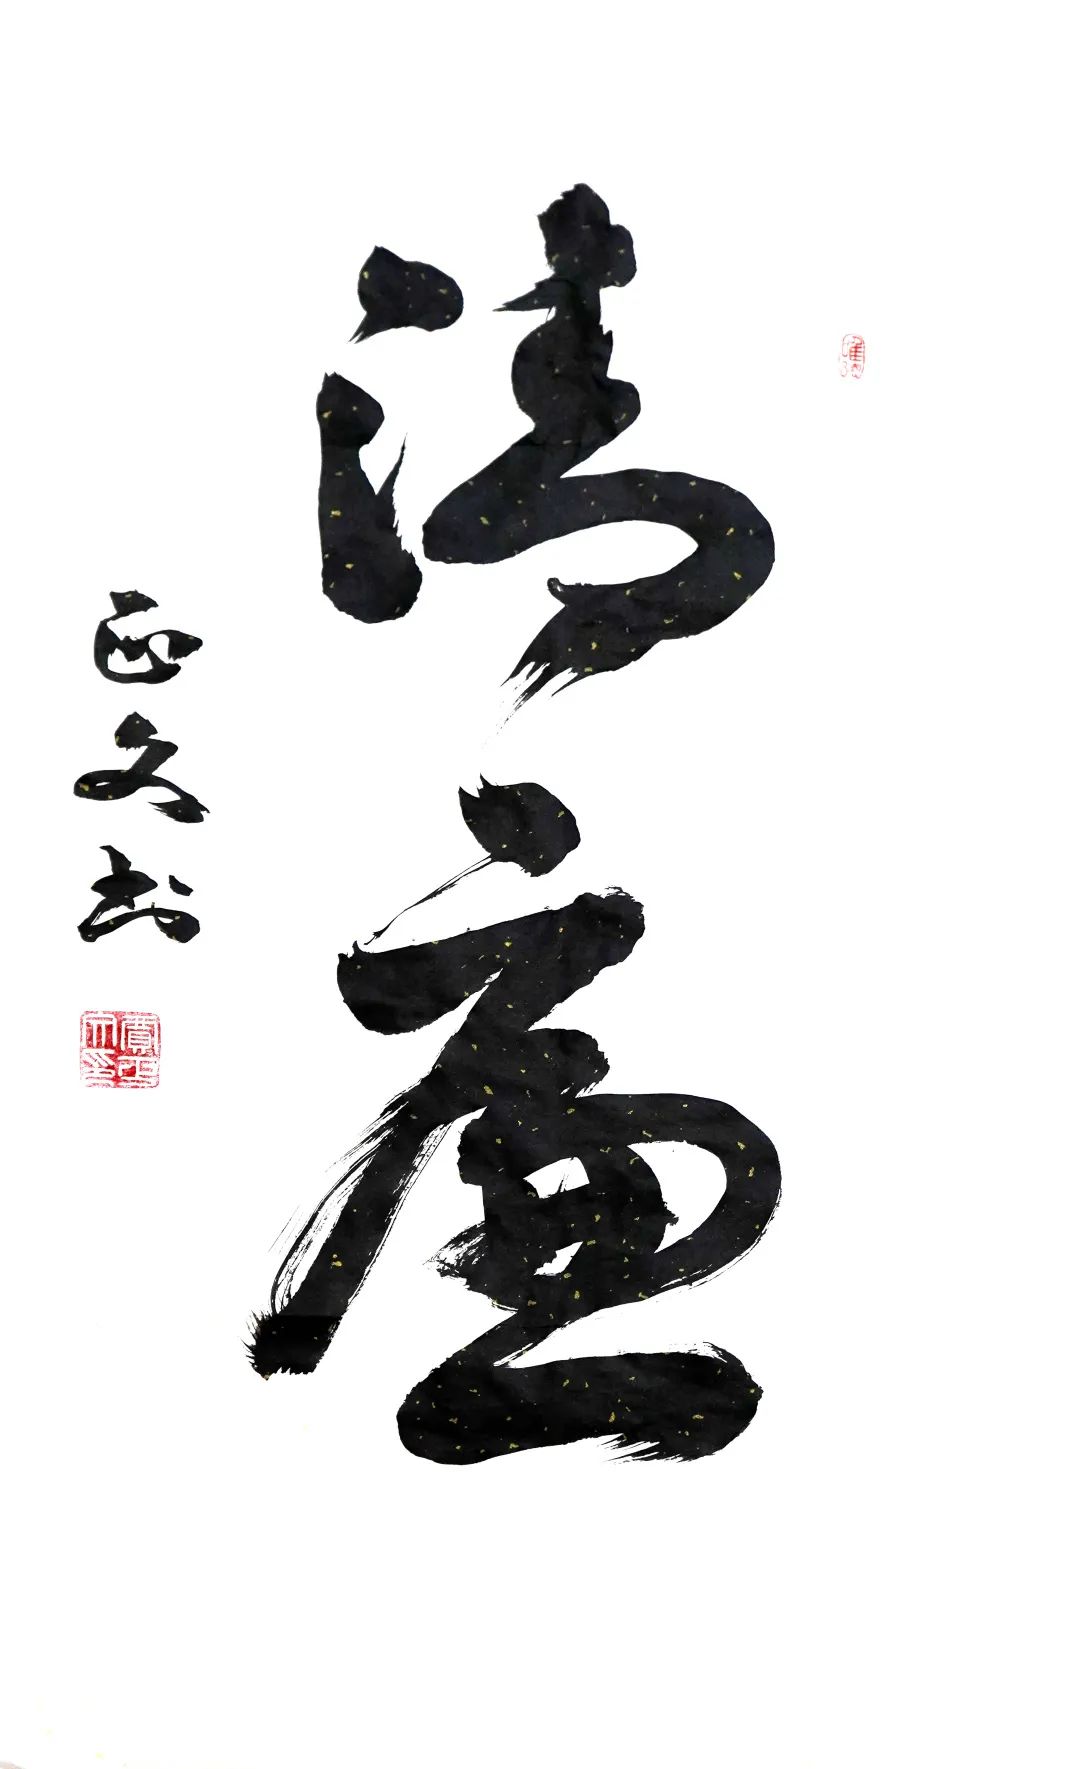 清廉
正文书